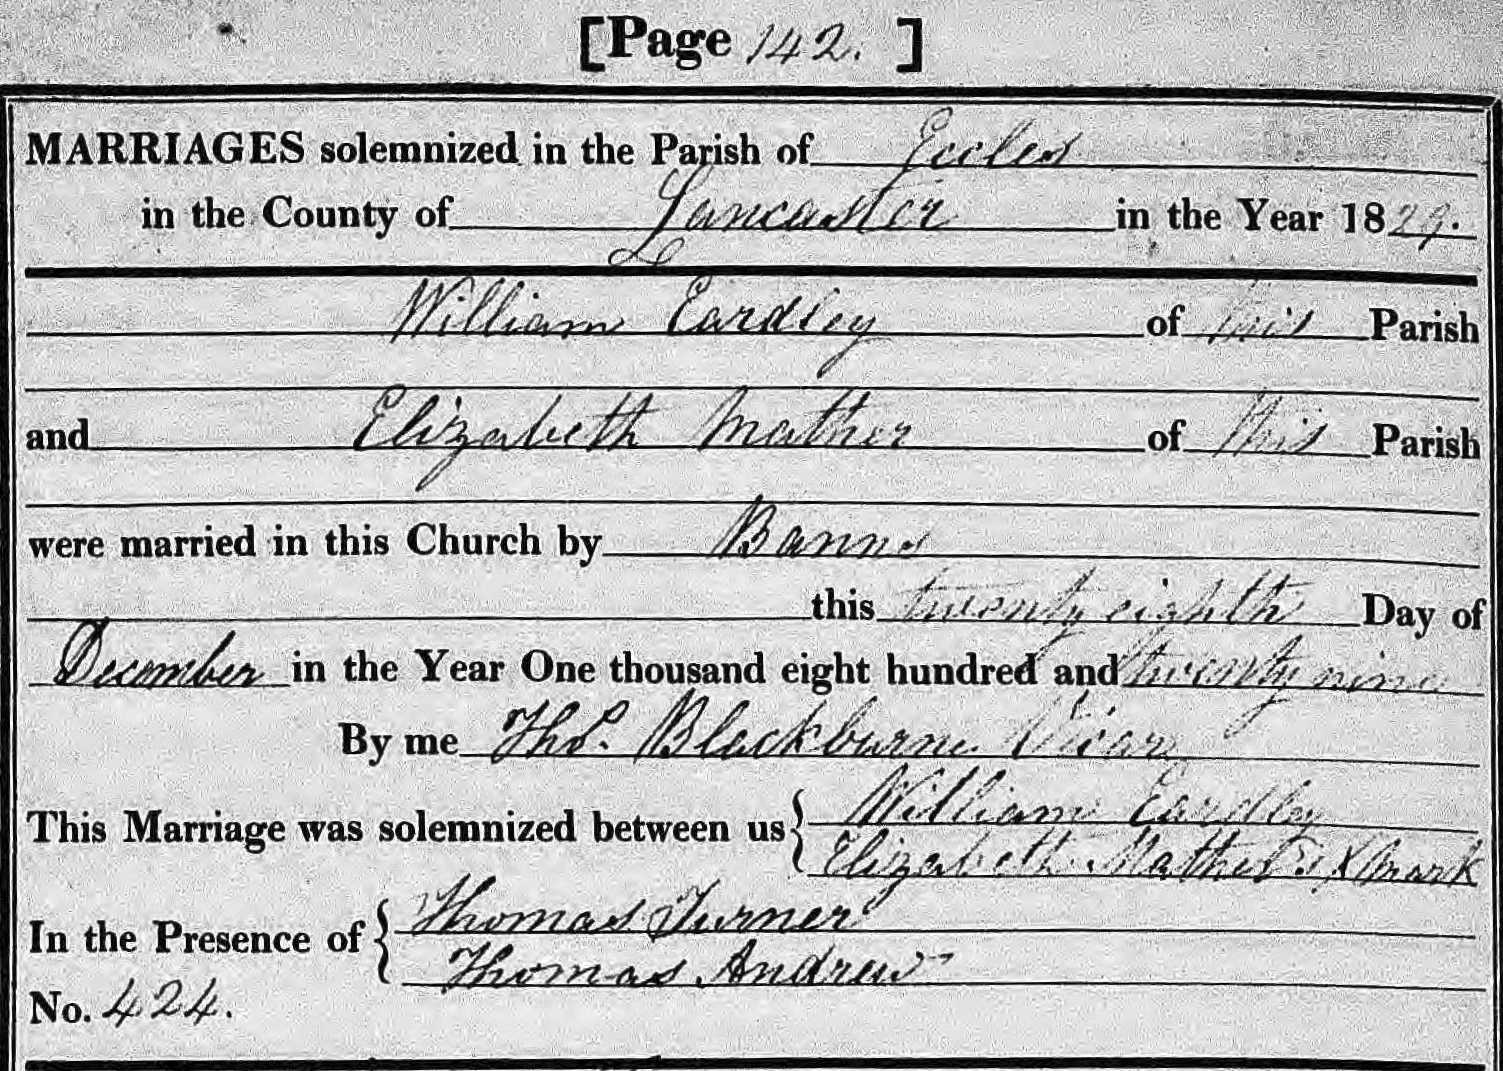 [Page 142. ]
MARRIAGES solemnized in the Parish of Eccles
in the County of Lancaster in the Year 1829.
William Eardley of this Parish
and Elizabeth Mather of this Parish
were married in this Church by Banns
this twenty eighth Day of
December in the Year One thousand eight hundred and twenty nine
By me Thos. Blackburne Vicar
This Marriage was solemnized between us { William Eardley
Elizabeth Mather's X Mark
In the Presence of { Thomas Turner
Thomas Andrew
No. 424.